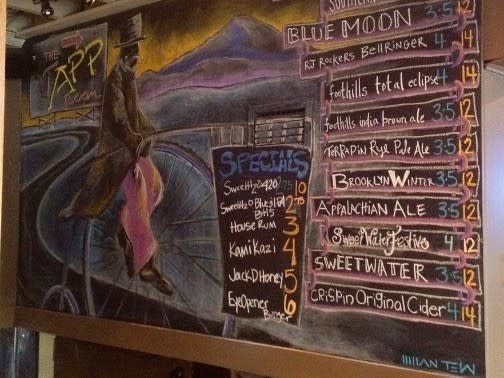 THE
APP
Room
SPECIALS
SweetH2O 420 2.75 10
SweetH2O Blue
House Rum 3
KamiKazi 4
Jack D Honey 5
EyeOpener 6
Burger
BLUE MOON 3.5 12
RJ ROCKERS BELLRINGER 4 14
foothills total eclipse 4 14
foothills india brown ale 3.5 12
TERRAPIN Rye Pale Ale 3.5 12
BROOKLYN WINTER 3.5 12
APPALACHIAN ALE 3.5 12
SweetWater Festive 4 12
SWEETWATER 3.5 12
CRiSPiN Original Cider 4 14